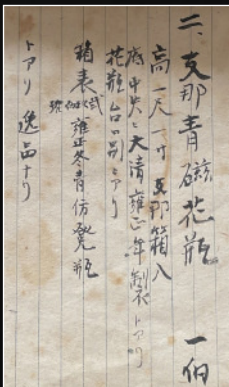 二、支那青磁花瓶 一個
高一尺一寸 支那箱入
底中央ニ大清雍正年製トアリ
花瓶台ハ別ニアリ
箱表 雍正冬青仿発瓶
トアリ 逸品ナリ